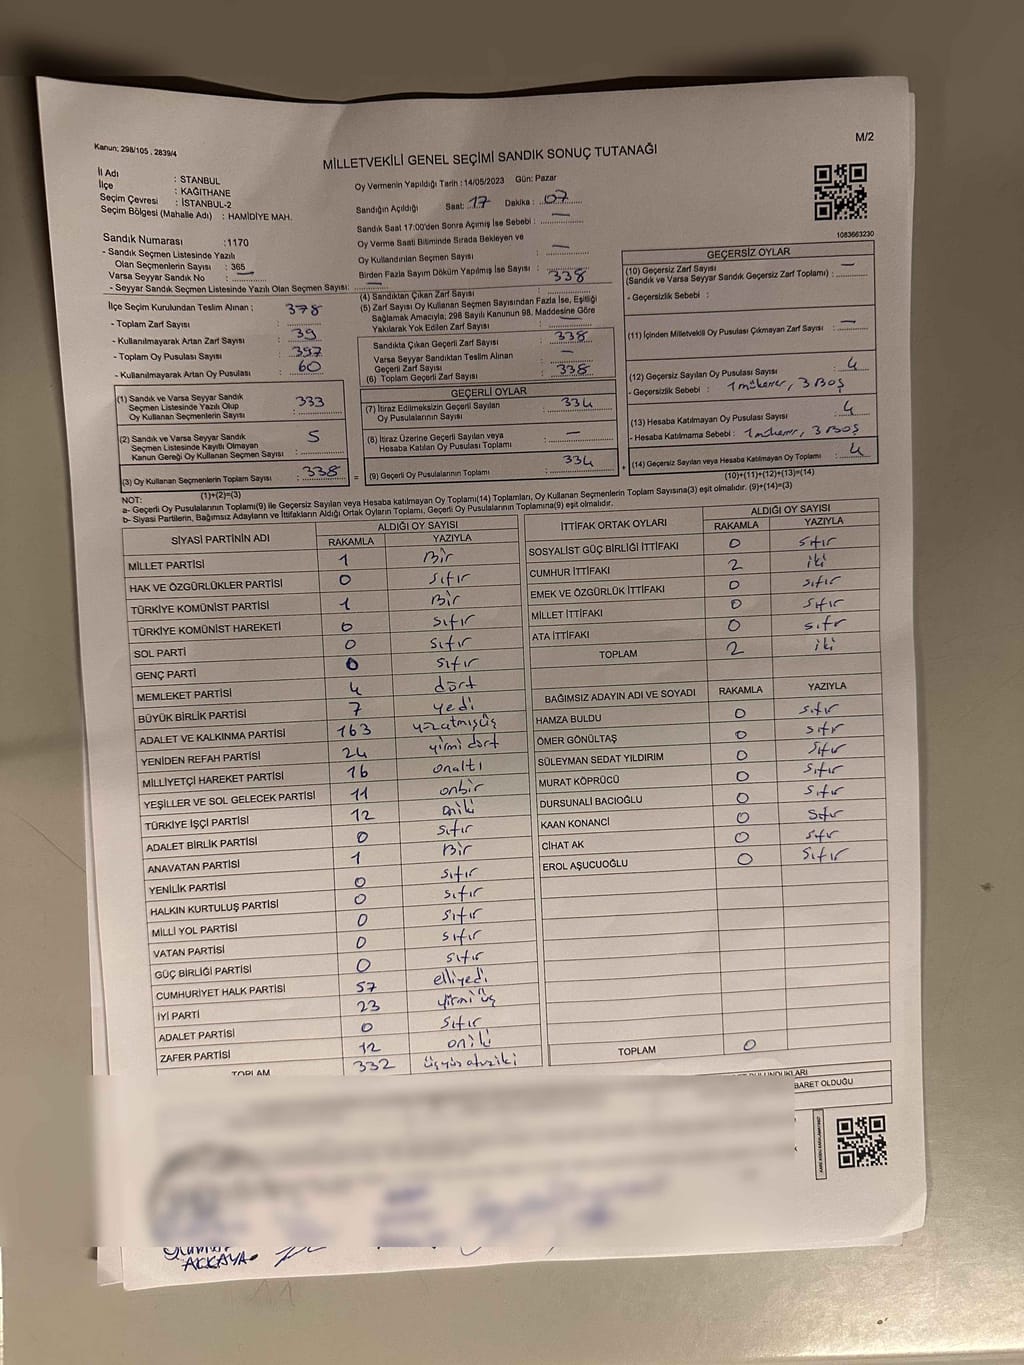 Kanun: 298/105 , 2839/4
M/2
MİLLETVEKİLİ GENEL SEÇİMİ SANDIK SONUÇ TUTANAĞI
İl Adı : İSTANBUL
İlçe : KAĞITHANE
Seçim Çevresi : İSTANBUL-2
Seçim Bölgesi (Mahalle Adı) : HAMİDİYE MAH.
Sandık Numarası :1170
- Sandık Seçmen Listesinde Yazılı
Olan Seçmenlerin Sayısı : 365
Varsa Seyyar Sandık No :
- Seyyar Sandık Seçmen Listesinde Yazılı Olan Seçmen Sayısı: —
Oy Vermenin Yapıldığı Tarih : 14/05/2023 Gün: Pazar
Sandığın Açıldığı Saat: 17 Dakika : 07
Sandık Saat 17:00'den Sonra Açımış İse Sebebi : —
Oy Verme Saati Bitiminde Sırada Bekleyen ve
Oy Kullandırılan Seçmen Sayısı : —
Birden Fazla Sayım Döküm Yapılmış İse Sayısı : —
1083663230
İlçe Seçim Kurulundan Teslim Alınan ;
- Toplam Zarf Sayısı : 378
- Kullanılmayarak Artan Zarf Sayısı : 39
- Toplam Oy Pusulası Sayısı : 397
- Kullanılmayarak Artan Oy Pusulası : 60
(1) Sandık ve Varsa Seyyar Sandık
Seçmen Listesinde Yazılı Olup
Oy Kullanan Seçmenlerin Sayısı : 333
(2) Sandık ve Varsa Seyyar Sandık
Seçmen Listesinde Kayıtlı Olmayan
Kanun Gereği Oy Kullanan Seçmen Sayısı : 5
(3) Oy Kullanan Seçmenlerin Toplam Sayısı : 338
(1)+(2)=(3)
(4) Sandıktan Çıkan Zarf Sayısı : 338
(5) Zarf Sayısı Oy Kullanan Seçmen Sayısından Fazla İse, Eşitliği
Sağlamak Amacıyla; 298 Sayılı Kanunun 98. Maddesine Göre
Yakılarak Yok Edilen Zarf Sayısı : —
Sandıkta Çıkan Geçerli Zarf Sayısı : 338
Varsa Seyyar Sandıktan Teslim Alınan
Geçerli Zarf Sayısı : —
(6) Toplam Geçerli Zarf Sayısı : 338
GEÇERLİ OYLAR
(7) İtiraz Edilmeksizin Geçerli Sayılan
Oy Pusulalarının Sayısı : 334
(8) İtiraz Üzerine Geçerli Sayılan veya
Hesaba Katılan Oy Pusulası Toplamı : —
= (9) Geçerli Oy Pusulalarının Toplamı : 334 +
GEÇERSİZ OYLAR
(10) Geçersiz Zarf Sayısı
(Sandık ve Varsa Seyyar Sandık Geçersiz Zarf Toplamı) : —
- Geçersizlik Sebebi :
(11) İçinden Milletvekili Oy Pusulası Çıkmayan Zarf Sayısı : —
(12) Geçersiz Sayılan Oy Pusulası Sayısı : 4
- Geçersizlik Sebebi : 1 mükerrer, 3 Boş
(13) Hesaba Katılmayan Oy Pusulası Sayısı : 4
- Hesaba Katılmama Sebebi : 1 mükerrer, 3 Boş
(14) Geçersiz Sayılan veya Hesaba Katılmayan Oy Toplamı : 4
(10)+(11)+(12)+(13)=(14)
NOT:
a- Geçerli Oy Pusulalarının Toplamı(9) ile Geçersiz Sayılan veya Hesaba katılmayan Oy Toplamı(14) Toplamları, Oy Kullanan Seçmenlerin Toplam Sayısına(3) eşit olmalıdır. (9)+(14)=(3)
b- Siyasi Partilerin, Bağımsız Adayların ve İttifakların Aldığı Ortak Oyların Toplamı, Geçerli Oy Pusulalarının Toplamına(9) eşit olmalıdır.
SİYASİ PARTİNİN ADI ALDIĞI OY SAYISI
RAKAMLA YAZIYLA
MİLLET PARTİSİ 1 Bir
HAK VE ÖZGÜRLÜKLER PARTİSİ 0 sıfır
TÜRKİYE KOMÜNİST PARTİSİ 1 Bir
TÜRKİYE KOMÜNİST HAREKETİ 0 sıfır
SOL PARTİ 0 sıfır
GENÇ PARTİ 0 sıfır
MEMLEKET PARTİSİ 4 dört
BÜYÜK BİRLİK PARTİSİ 7 yedi
ADALET VE KALKINMA PARTİSİ 163 yüzatmışüç
YENİDEN REFAH PARTİSİ 24 yirmi dört
MİLLİYETÇİ HAREKET PARTİSİ 16 onaltı
YEŞİLLER VE SOL GELECEK PARTİSİ 11 onbir
TÜRKİYE İŞÇİ PARTİSİ 12 oniki
ADALET BİRLİK PARTİSİ 0 sıfır
ANAVATAN PARTİSİ 1 Bir
YENİLİK PARTİSİ 0 sıfır
HALKIN KURTULUŞ PARTİSİ 0 sıfır
MİLLİ YOL PARTİSİ 0 sıfır
VATAN PARTİSİ 0 sıfır
GÜÇ BİRLİĞİ PARTİSİ 0 sıfır
CUMHURİYET HALK PARTİSİ 57 elliyedi
İYİ PARTİ 23 yirmi üç
ADALET PARTİSİ 0 sıfır
ZAFER PARTİSİ 12 oniki
TOPLAM 332 üçyüzotuziki
İTTİFAK ORTAK OYLARI ALDIĞI OY SAYISI
RAKAMLA YAZIYLA
SOSYALİST GÜÇ BİRLİĞİ İTTİFAKI 0 sıfır
CUMHUR İTTİFAKI 2 iki
EMEK VE ÖZGÜRLÜK İTTİFAKI 0 sıfır
MİLLET İTTİFAKI 0 sıfır
ATA İTTİFAKI 0 sıfır
TOPLAM 2 iki
BAĞIMSIZ ADAYIN ADI VE SOYADI RAKAMLA YAZIYLA
HAMZA BULDU 0 sıfır
ÖMER GÖNÜLTAŞ 0 sıfır
SÜLEYMAN SEDAT YILDIRIM 0 sıfır
MURAT KÖPRÜCÜ 0 sıfır
DURSUNALİ BACIOĞLU 0 sıfır
KAAN KONANCİ 0 sıfır
CİHAT AK 0 sıfır
EROL AŞUCUOĞLU 0 sıfır
TOPLAM 0
BARET OLDUĞU
AKKAYA